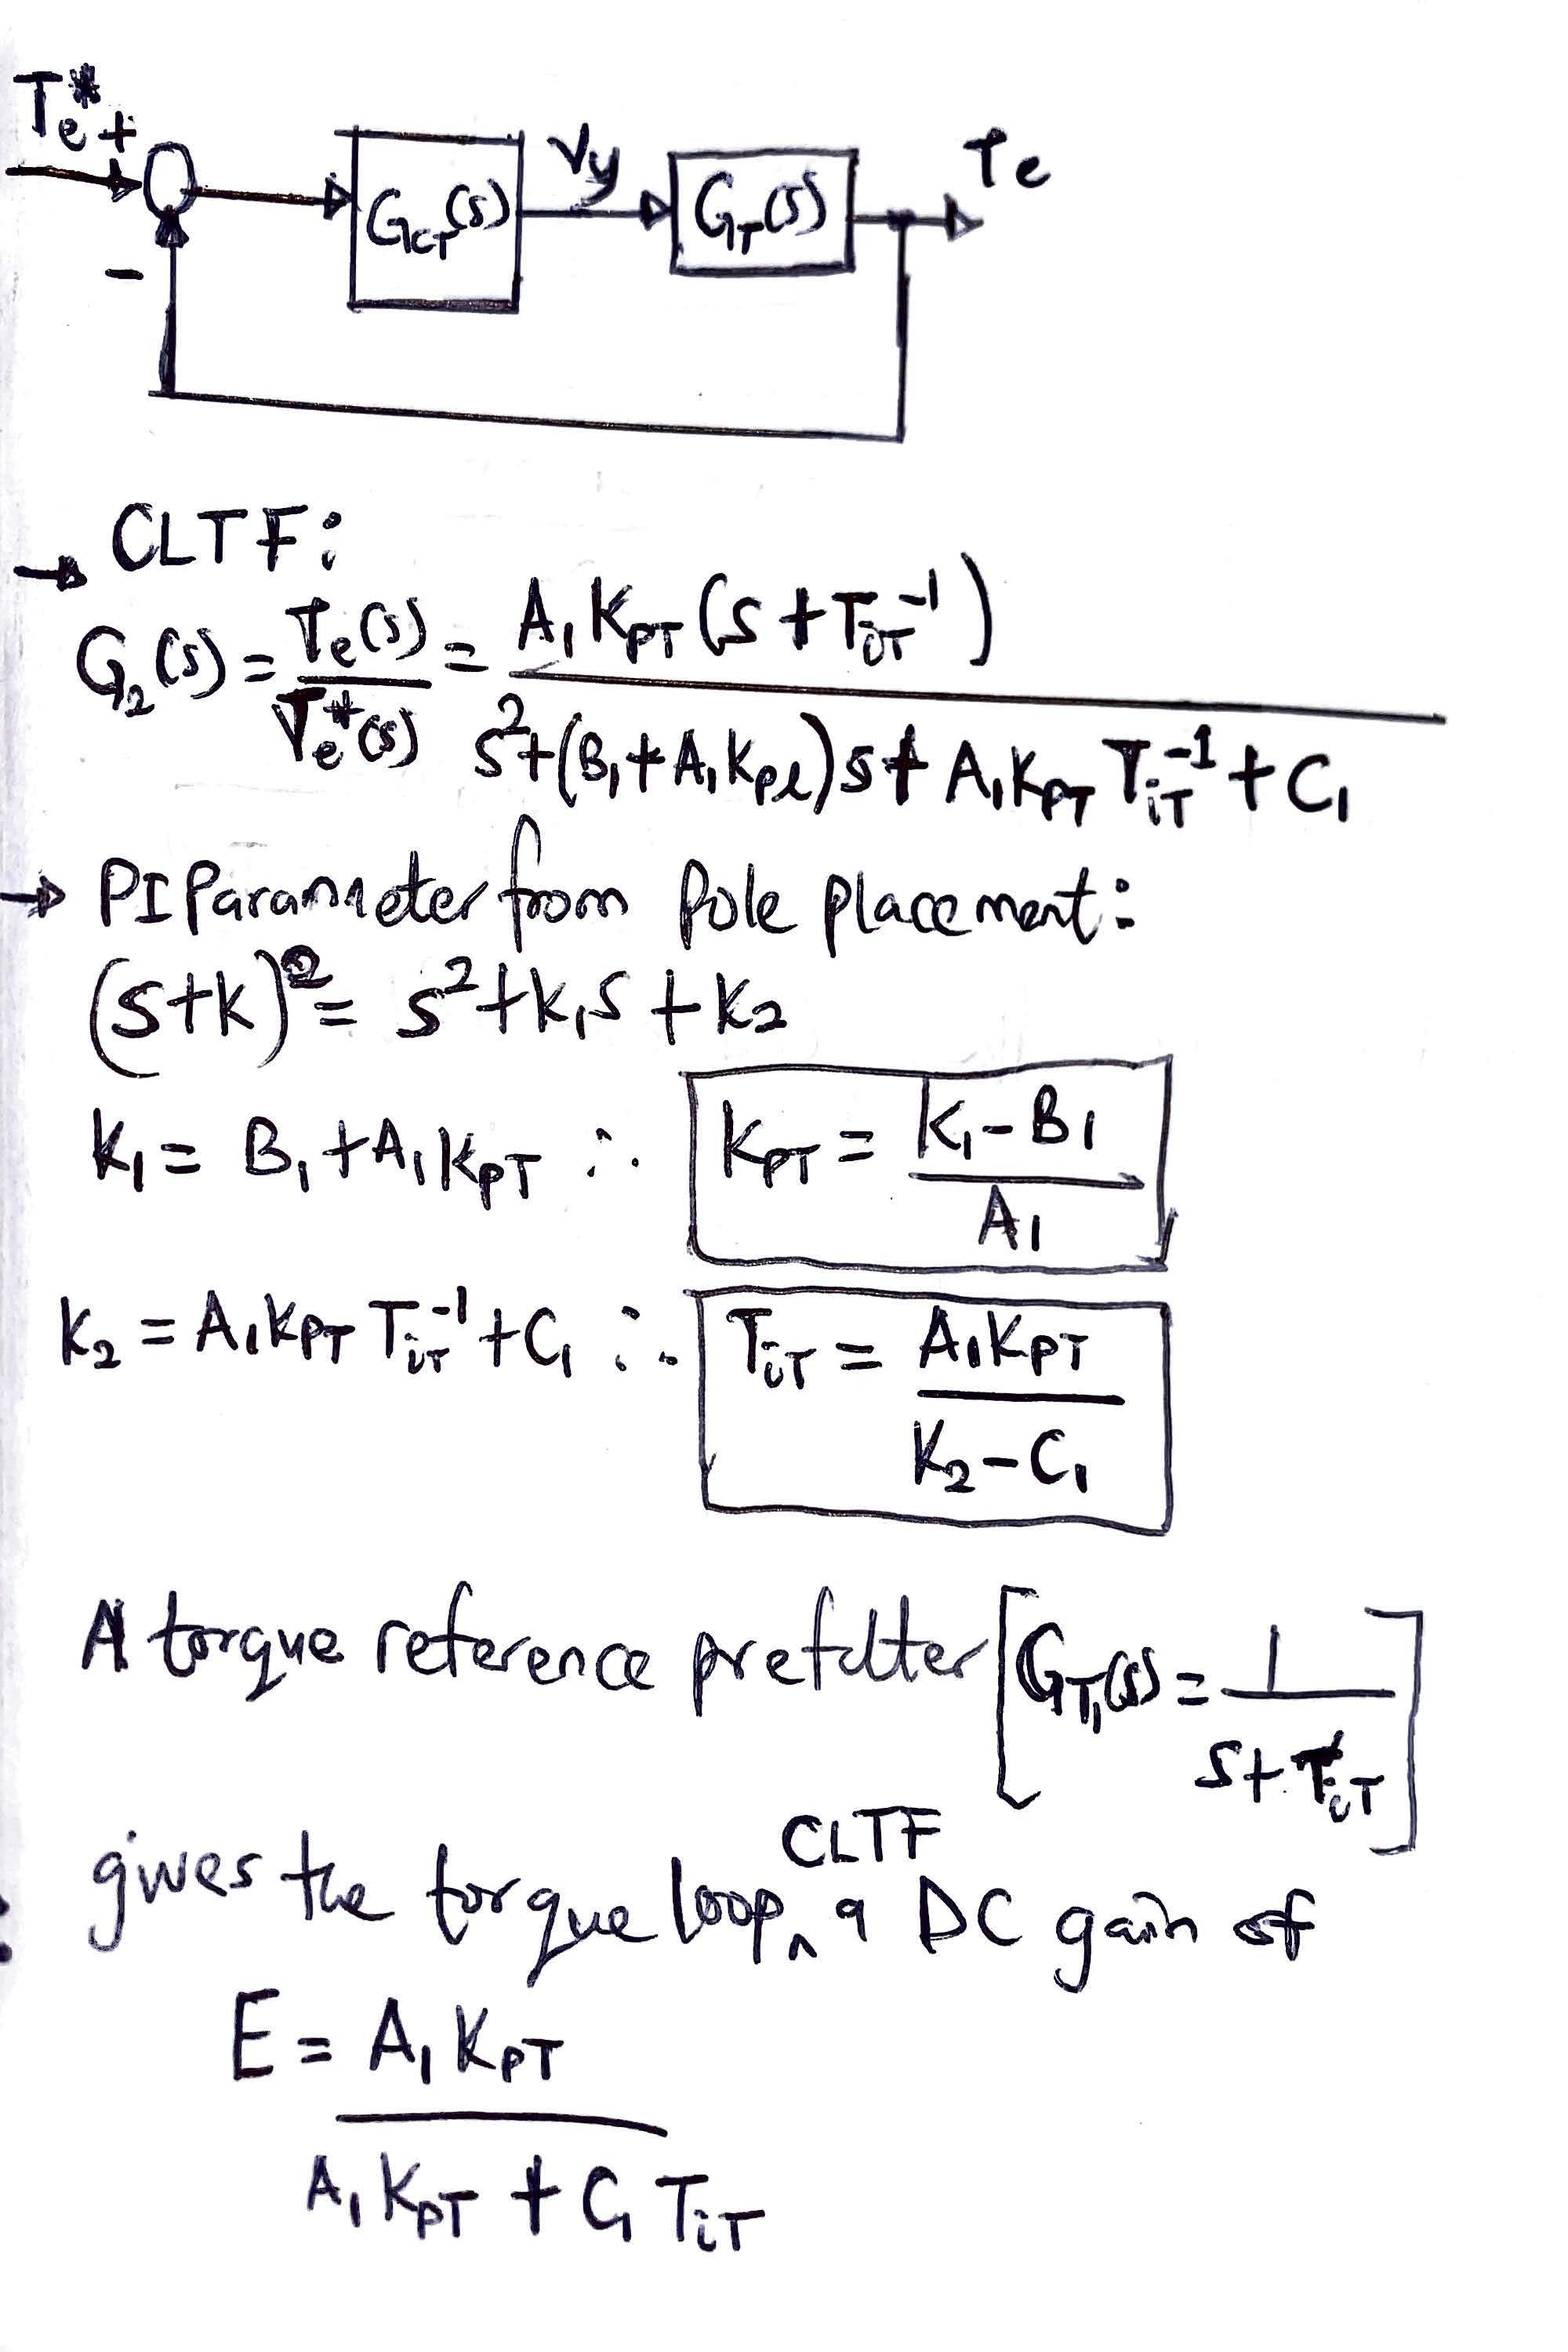 Te* +
-
GcT(s)
Vy
GT(s)
Te
→ CLTF:
G2(s) = Te(s) / Te*(s) = A1 KPT (s + TiT^-1) / s^2 + (B1 + A1 Kpl) s + A1 KPT TiT^-1 + C1
→ PI Parameter from Pole placement:
(s+k)^2 = s^2 + k1 s + k2
k1 = B1 + A1 KPT ∴ KPT = K1 - B1 / A1
K2 = A1 KPT TiT^-1 + C1 ∴ TiT = A1 KPT / K2 - C1
A torque reference prefilter [GT1(s) = 1 / s + TiT]
gives the torque loop CLTF a DC gain of
E = A1 KPT / A1 KPT + C1 TiT